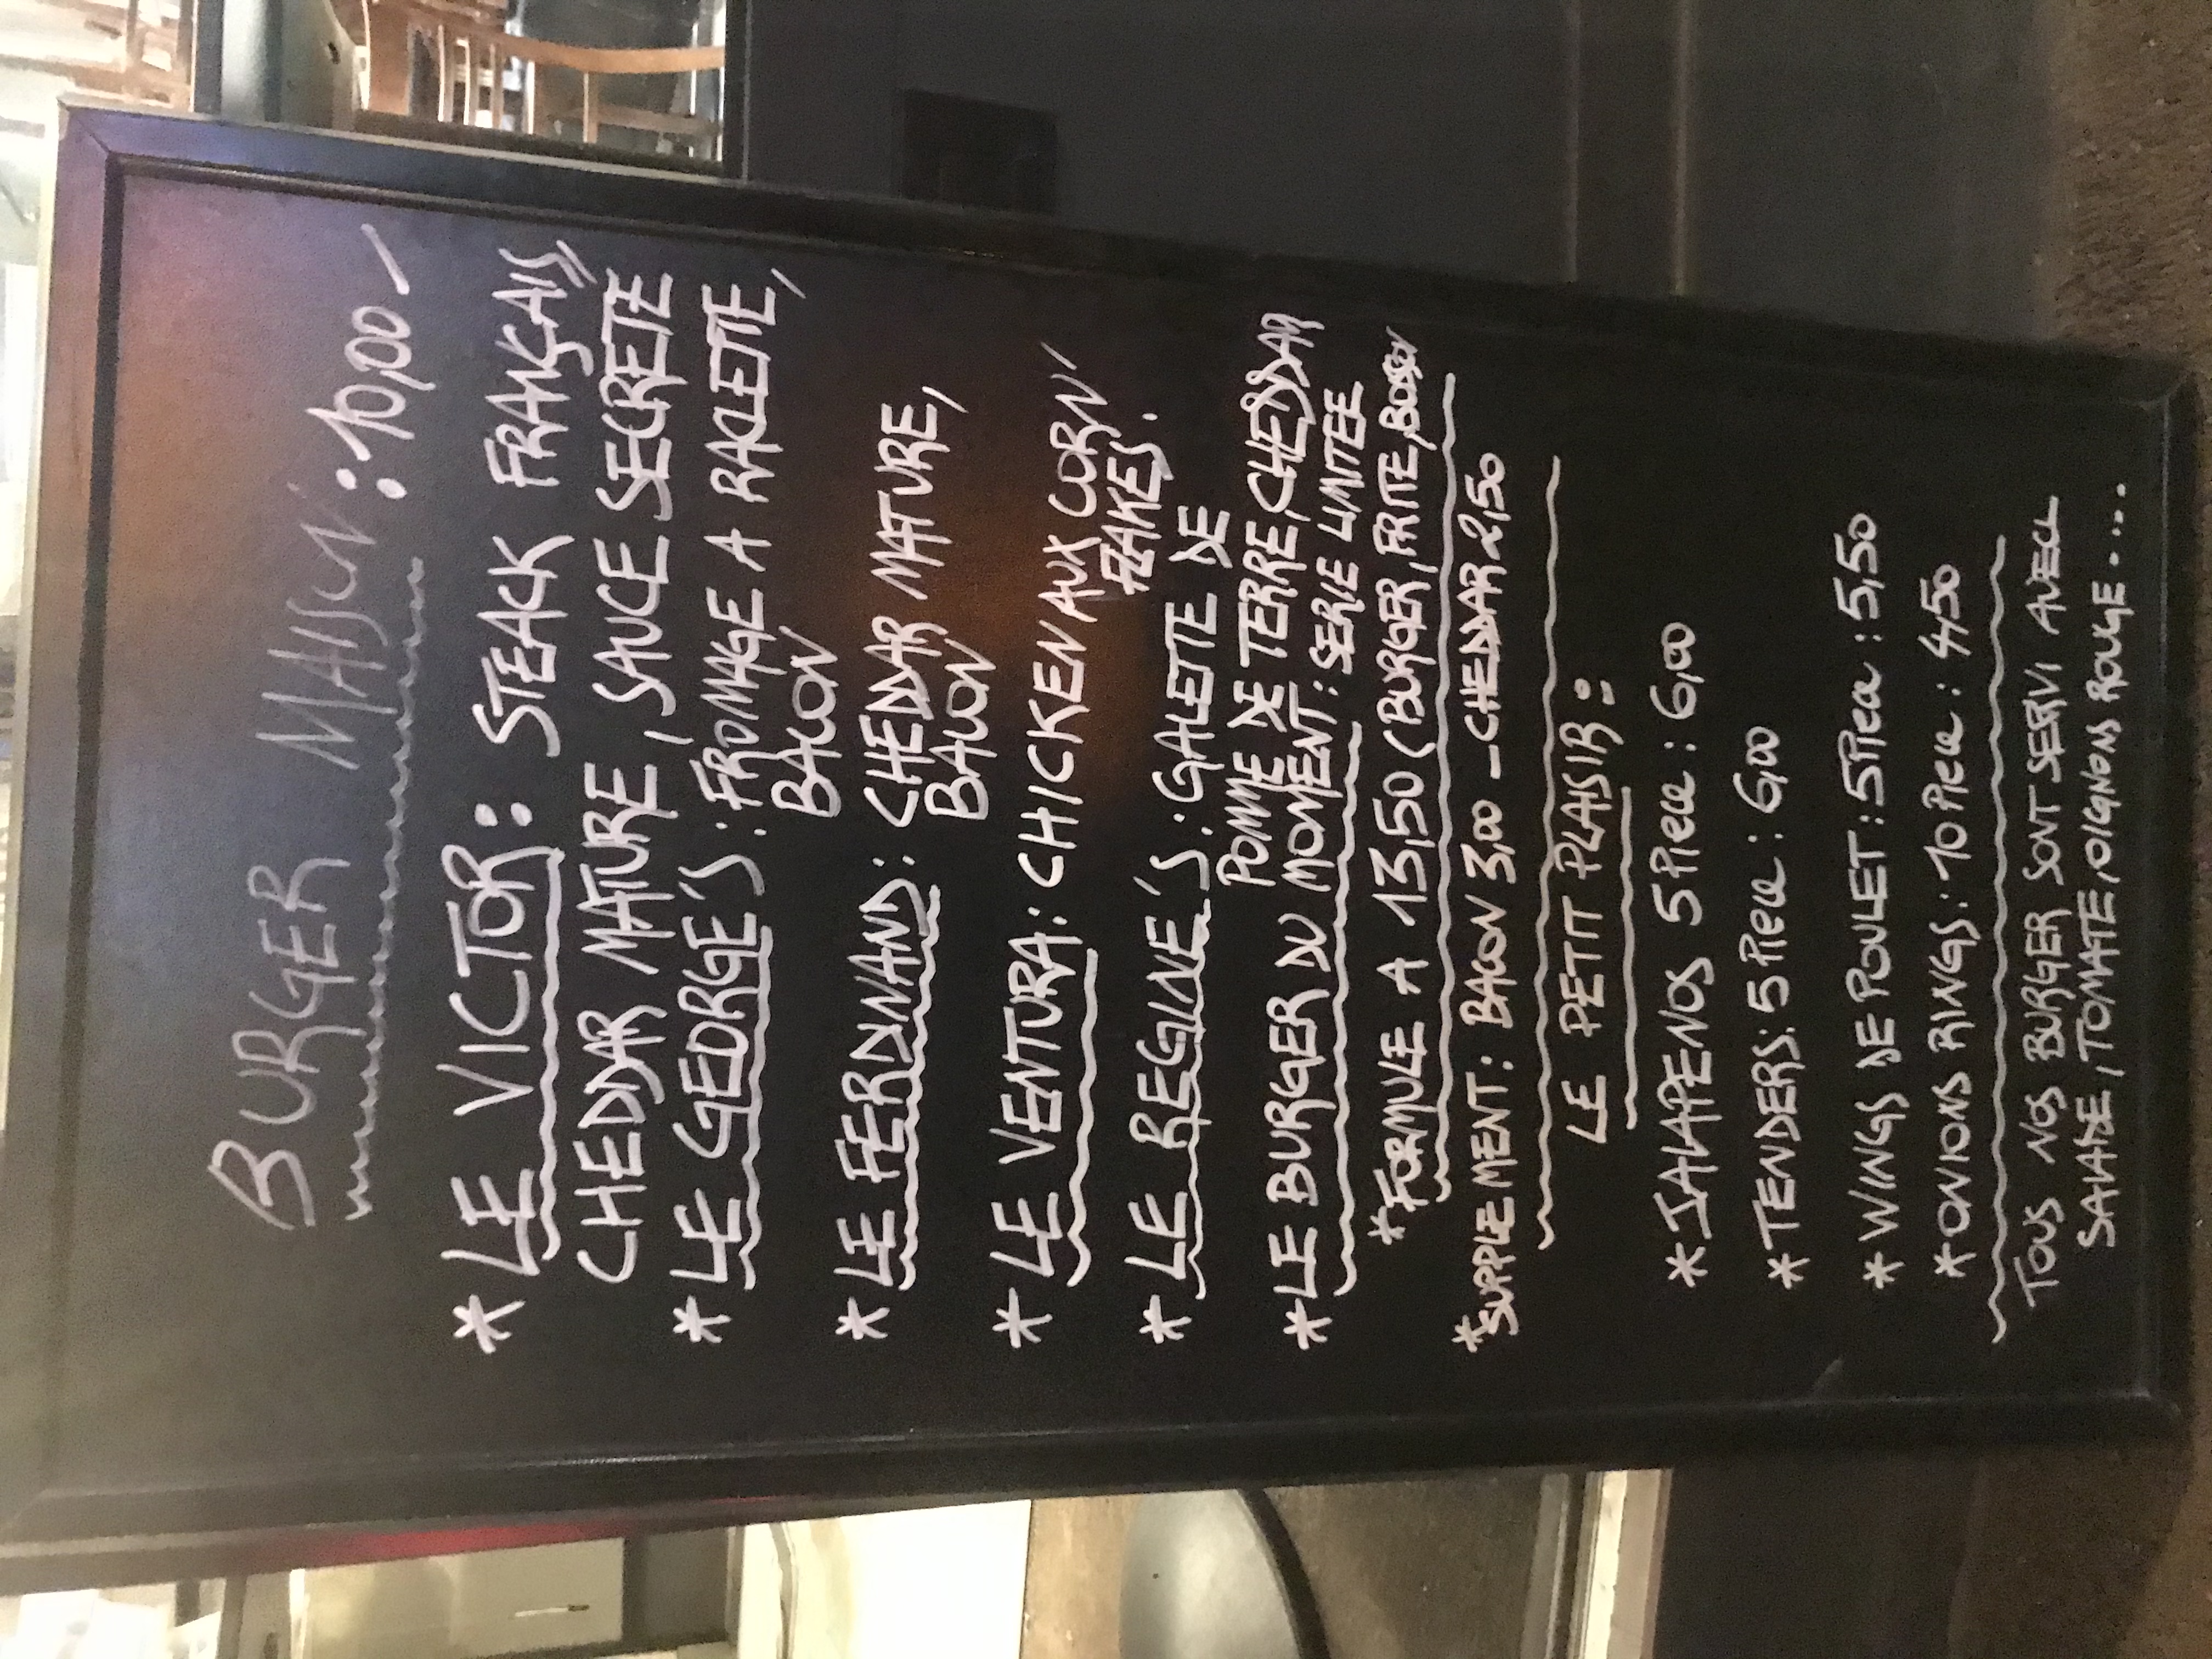 BURGER MAISON : 10,00
* LE VICTOR : STEACK FRANÇAIS,
CHEDDAR MATURE, SAUCE SECRETE
* LE GEORGE'S : FROMAGE A RACLETTE,
BACON
* LE FERDINAND : CHEDDAR MATURE,
BACON
* LE VENTURA : CHICKEN AUX CORN
FLAKES.
* LE REGINE'S : GALETTE DE
POMME DE TERRE, CHEDDAR
* LE BURGER DU MOMENT : SERIE LIMITEE
* FORMULE A 13,50 (BURGER, FRITE, BOISSON
* SUPPLEMENT : BACON 3,00 - CHEDDAR 2,50
LE PETIT PLAISIR :
* JALAPENOS 5 Piece : 6,00
* TENDERS : 5 Piece : 6,00
* WINGS DE POULET : 5 Piece : 5,50
* ONIONS RINGS : 10 Piece : 4,50
TOUS NOS BURGER SONT SERVI AVEC
SALADE, TOMATE, OIGNONS ROUGE ....